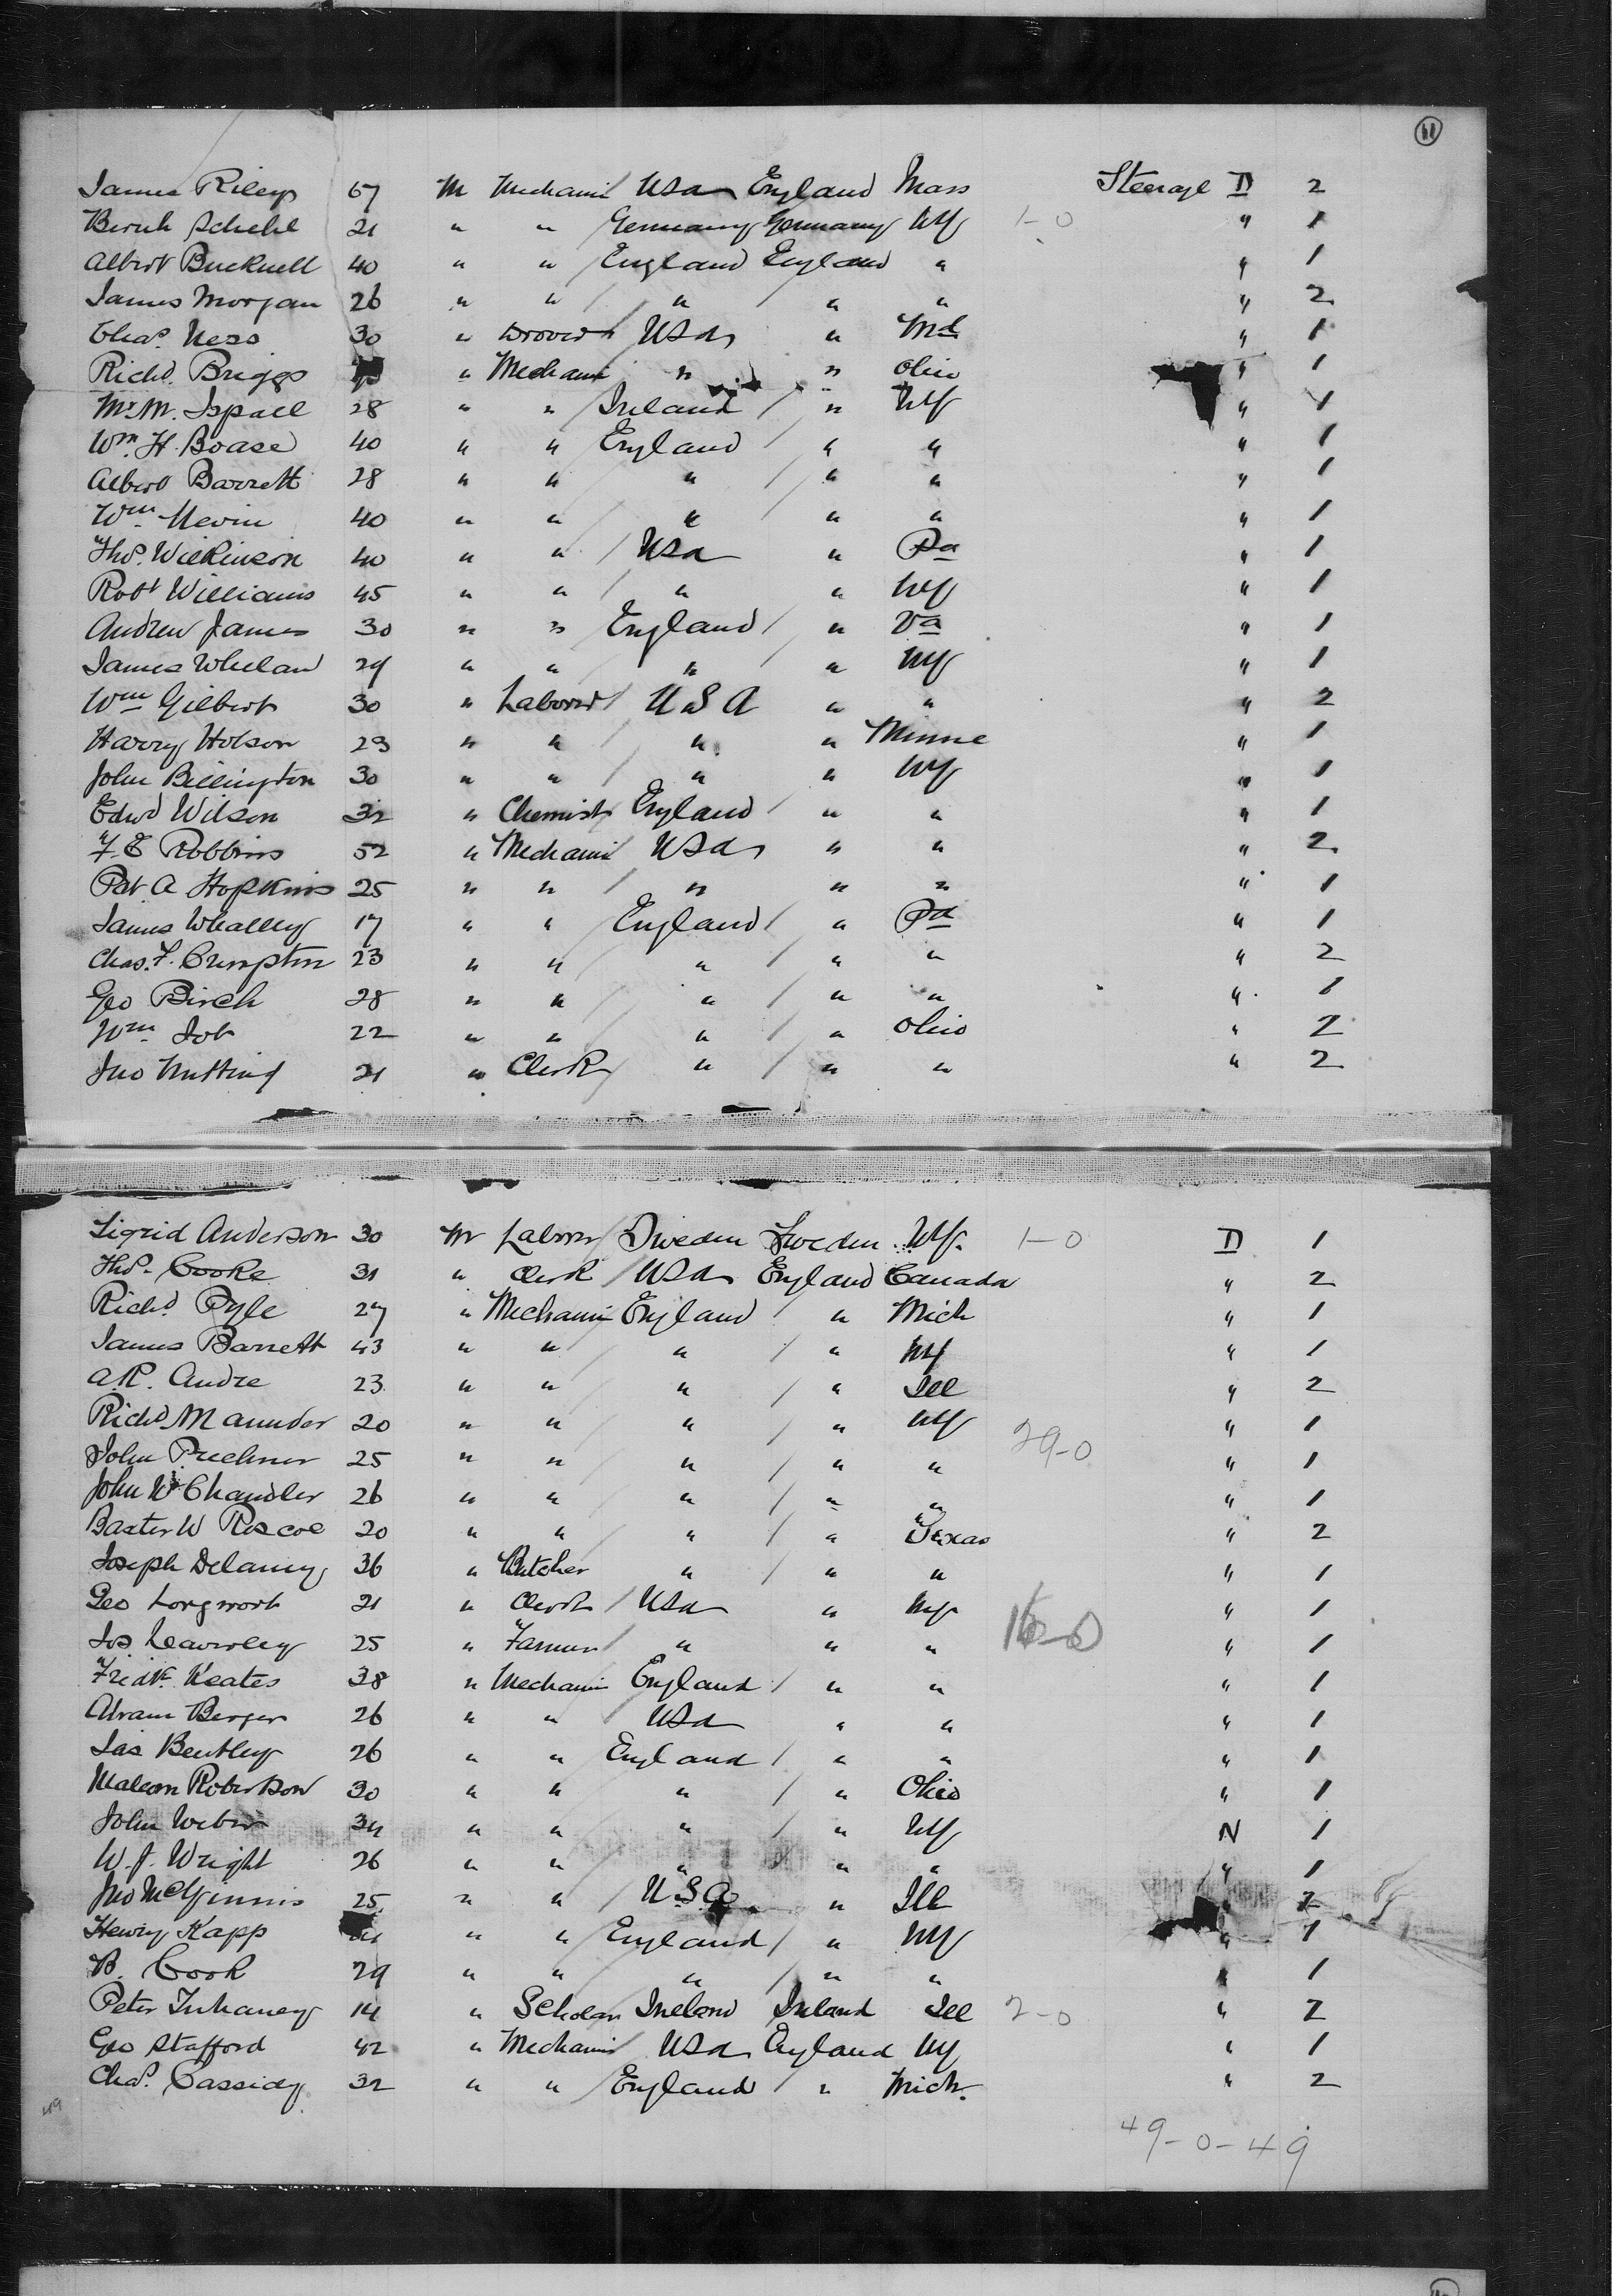 11
James Riley 67 M Mechanic USA England Mass Steerage D 2
Schehl 21 " " Germany Germany NY 1-0 " 1
Albert Bucknell 40 " " England England " " 1
James Morgan 26 " " " " " " 2
Chas. Ness 30 " Drover USA " Md " 1
Richd. Briggs " Mechanic " " Ohio " 1
28 " " Ireland " NY " 1
Wm. H. Boase 40 " " England " " " 1
Albert Barrett 28 " " " " " " 1
Wm Nevin 40 " " " " " " 1
Thos. Wilkinson 40 " " USA " Pa " 1
Robt Williams 45 " " " " NY " 1
Andrew James 30 " " England " Va " 1
James Whelan 29 " " " " NY " 1
Wm Gilbert 30 " Laborer USA " " " 2
Harry Hobson 23 " " " " Minne " 1
John Billington 30 " " " " NY " 1
Edwd Wilson 32 " Chemist England " " " 1
F. E Robbins 52 " Mechanic USA " " " 2
Pat. A Hopkins 25 " " " " " " 1
James Whalley 17 " " England " Pa " 1
Chas. F. Crumpton 23 " " " " " " 2
Geo Birch 28 " " " " " " 1
Wm Job 22 " " " " Ohio " 2
Jno Nutting 21 " Clerk " " " " 2
Sigrid Anderson 30 M Laborer Sweden Sweden NY. 1-0 D 1
Thos. Cooke 31 " Clerk USA England Canada " 2
Richd Pyle 27 " Mechanic England " Mich " 1
James Barrett 43 " " " " NY " 1
A.R. Andre 23 " " " " Ill " 2
Richd Maunder 20 " " " " NY 29-0 " 1
John 25 " " " " " " 1
John W Chandler 26 " " " " " " 1
Baxter W Roscoe 20 " " " " Texas " 2
Joseph Delaney 36 " Butcher " " " " 1
Geo Longworth 21 " Clerk USA " NY 16-0 " 1
Jos 25 " Farmer " " " " 1
Fredk Keates 38 " Mechanic England " " " 1
Abram Berger 26 " " USA " " " 1
Jas Bentley 26 " " England " " " 1
Malcom Robertson 30 " " " " Ohio " 1
John Weber 34 " " " " NY N 1
W. J. Wright 26 " " " " " " 1
Jno McGinnis 25 " " U.S.A " Ill " 2
Henry Kapp " " England " NY " 1
B. Cook 29 " " " " " " 1
Peter 14 " Scholar Ireland Ireland Ill 2-0 " 2
Geo Stafford 42 " Mechanic USA England NY " 1
Chas. Cassidy 32 " " England " Mich. " 2
49
49-0-49